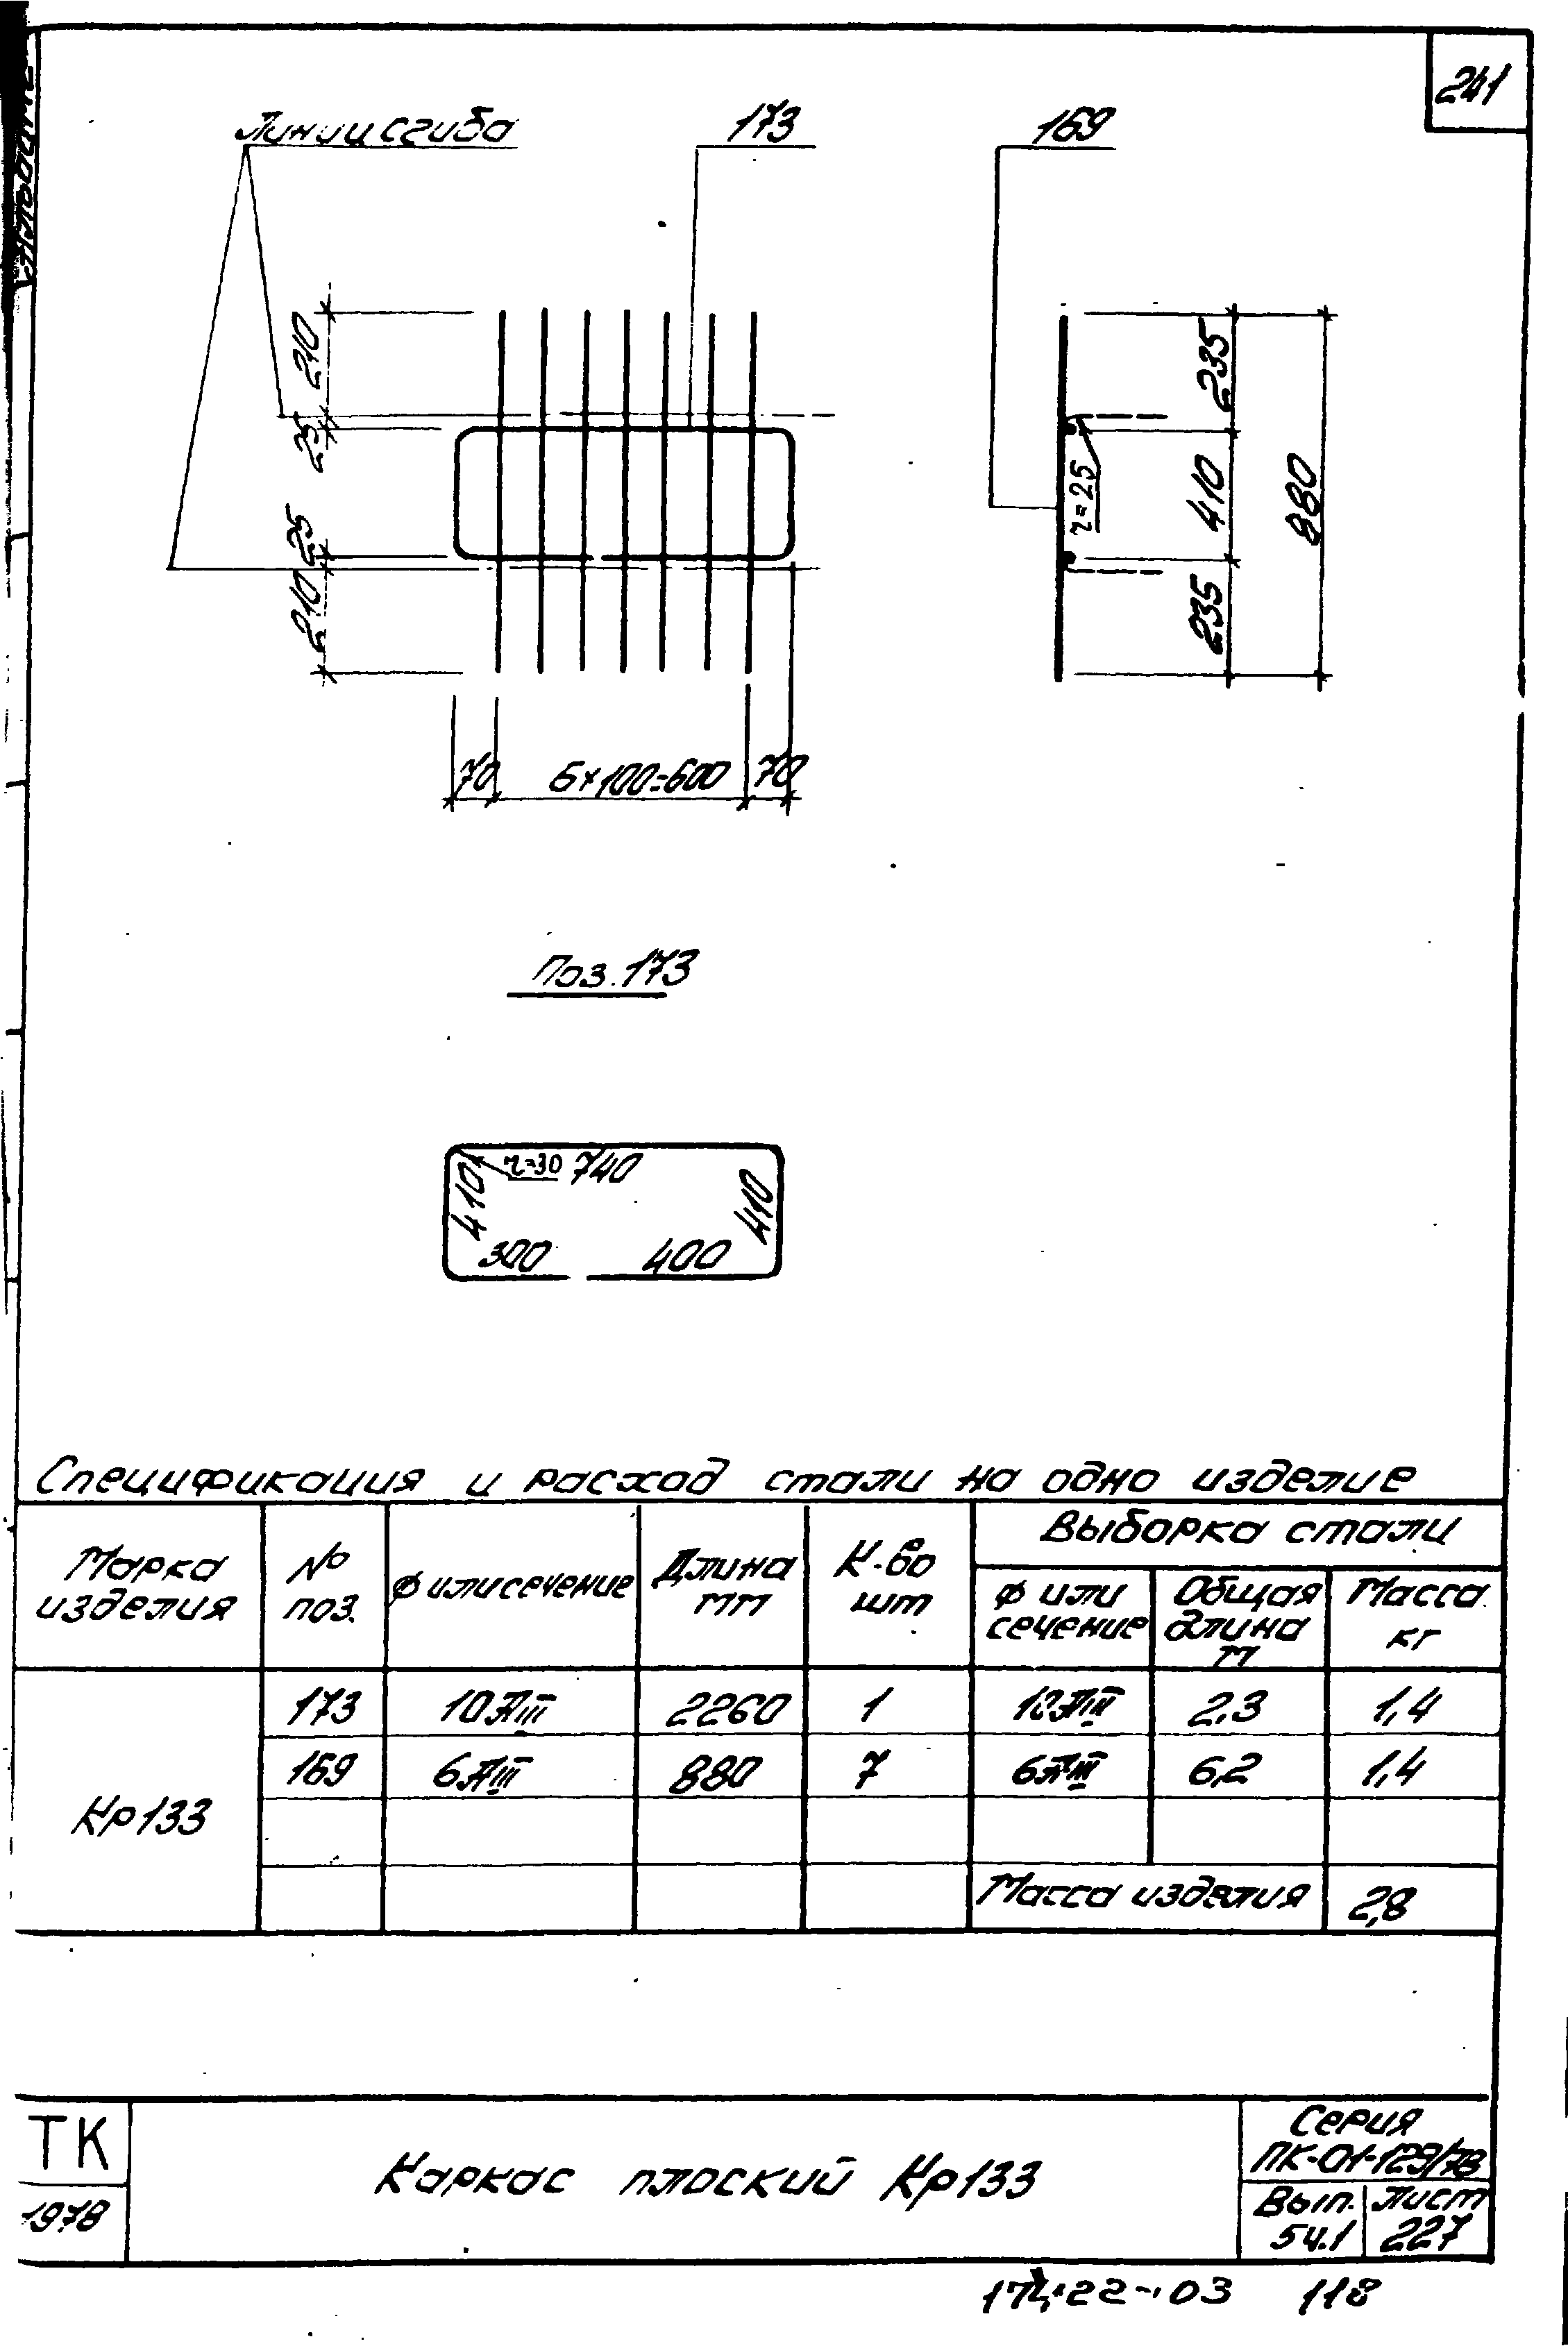 241
Линии сгиба
173
169
210
25
25
210
70
6×100=600
70
235
410
235
880
r=25
Поз. 173
r=30
740
410
410
300
400
Спецификация и расход стали на одно изделие
Марка изделия
№ поз.
ф или сечение
Длина мм
К-во шт
Выборка стали
ф или сечение
Общая длина м
Масса кг
Кр133
173 10АIII 2260 1 10АIII 2,3 1,4
169 6АIII 880 7 6АIII 6,2 1,4
Масса изделия 2,8
ТК
1978
Каркас плоский Кр133
Серия
ПК-01-129/78
Вып. 5ч.1
Лист 227
118